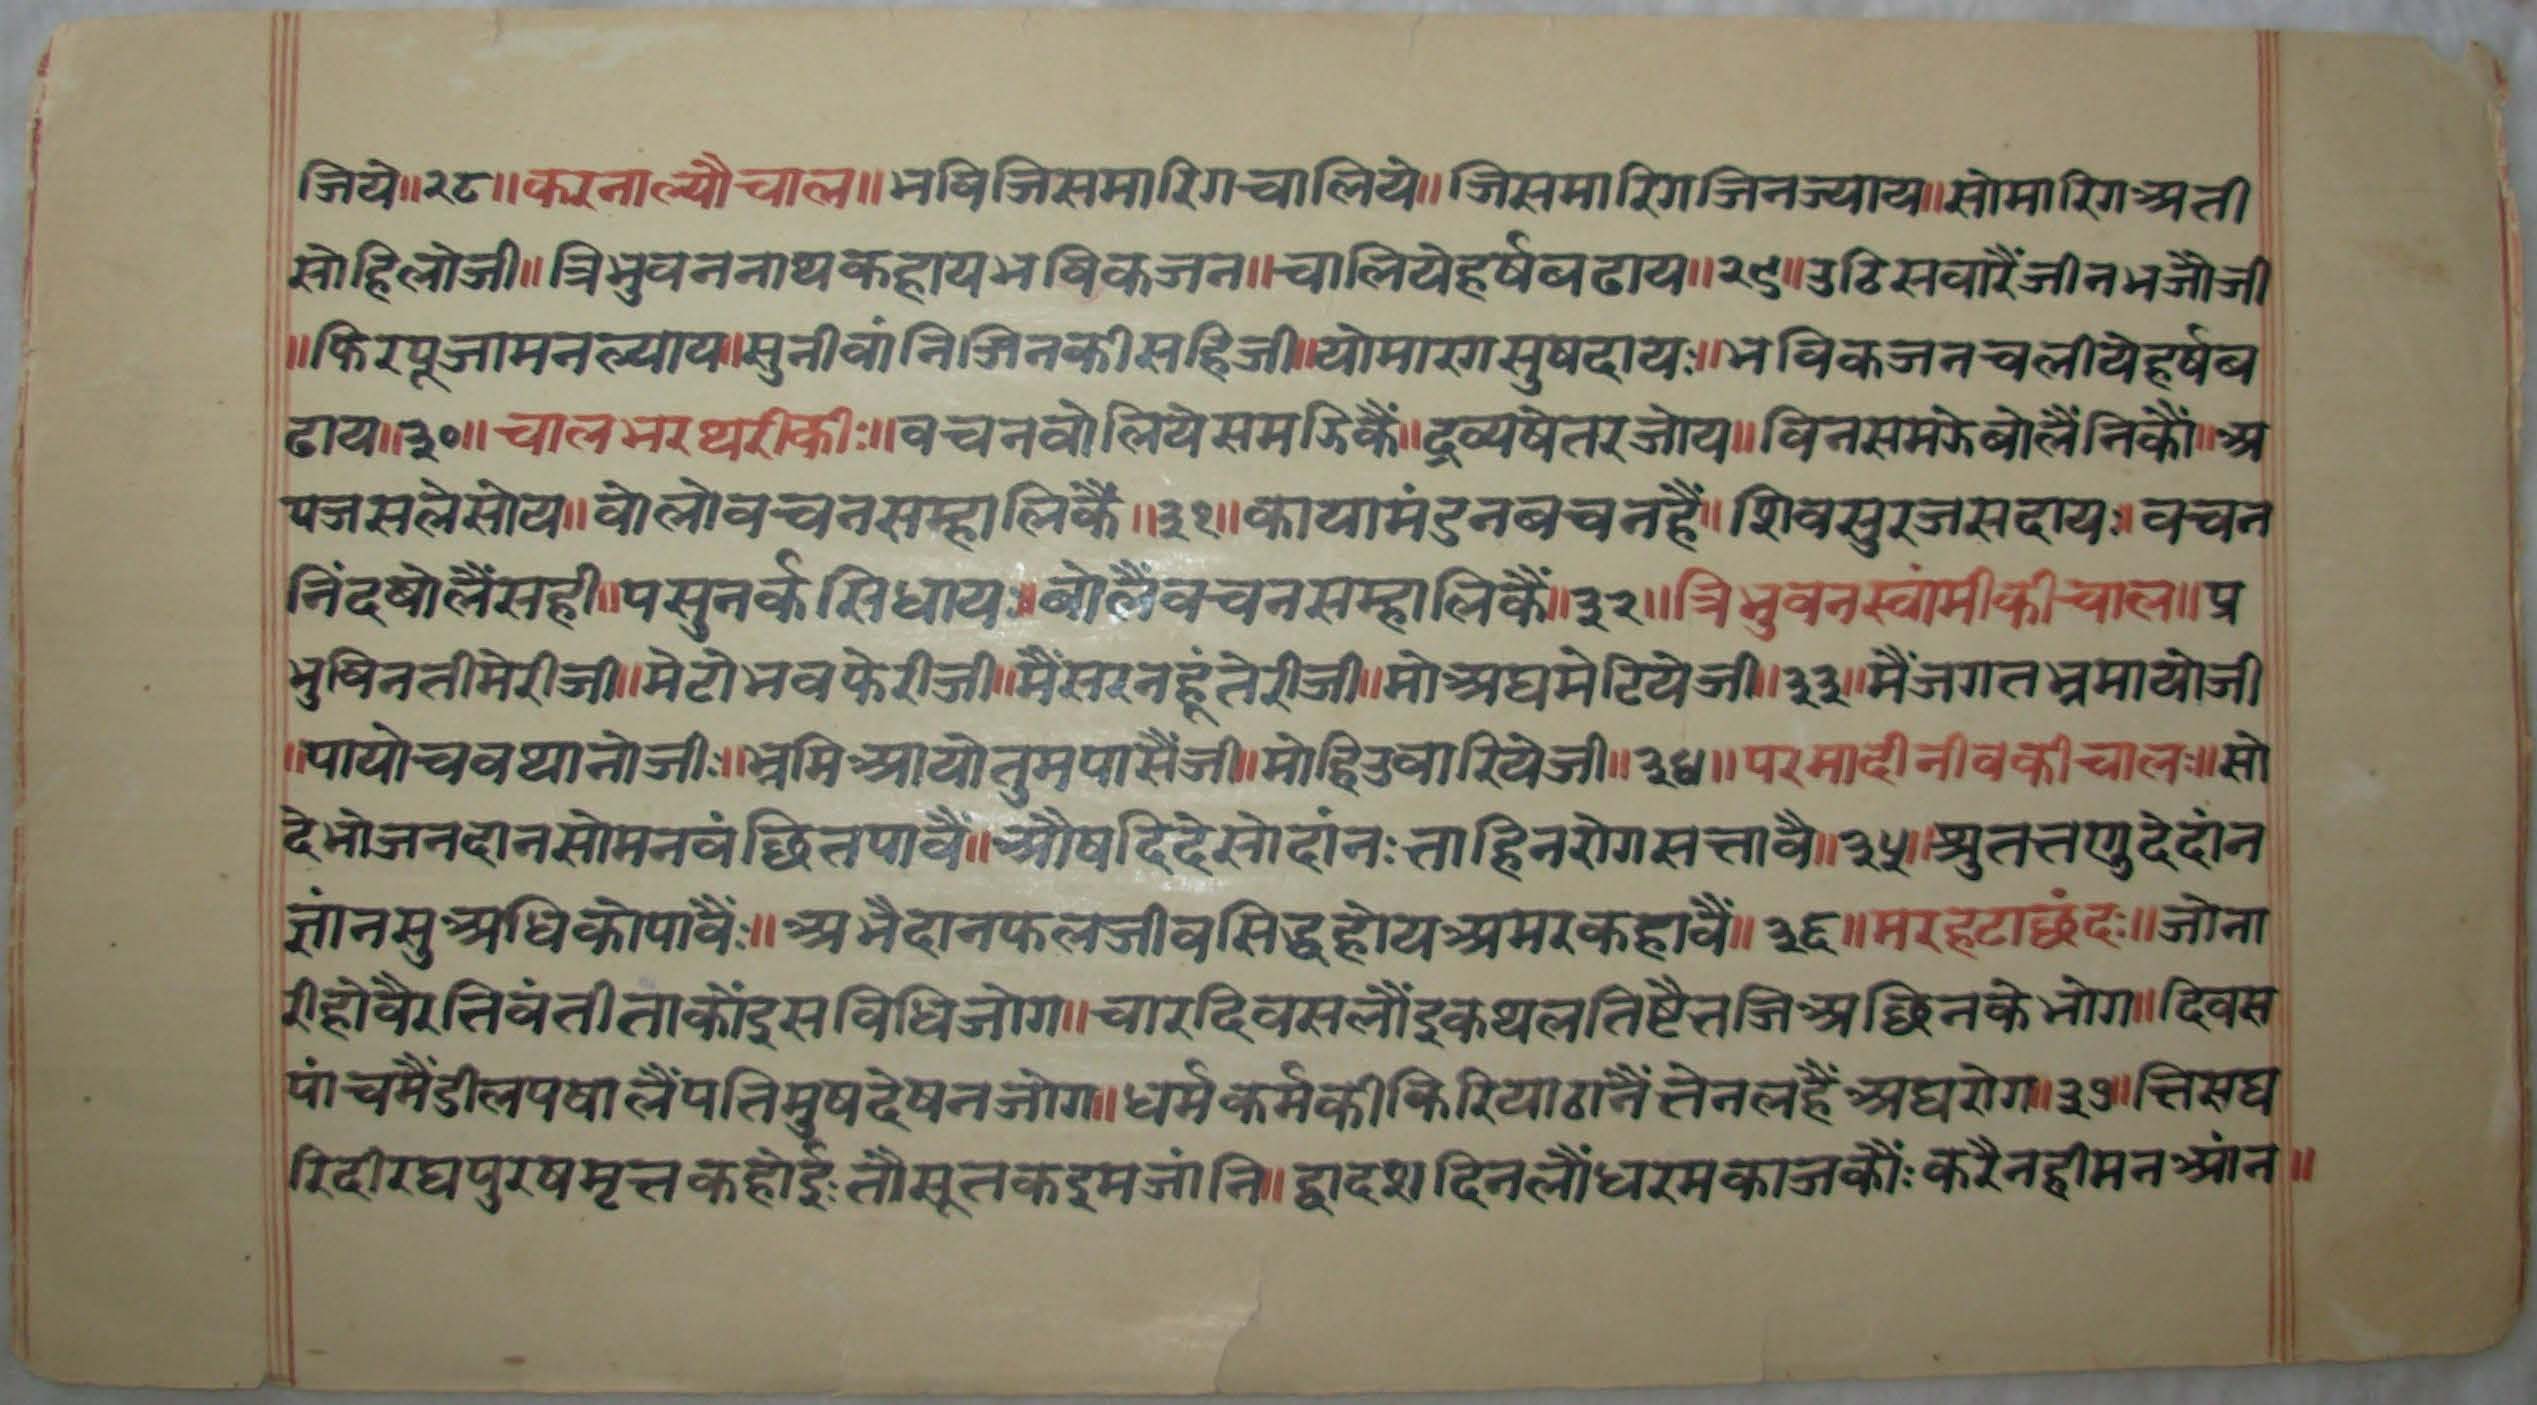 जिये॥२८॥करनाल्यौचाल॥भविजिसमारिगचालिये॥जिसमारिगजिनज्याय॥सोमारिगअती
सोहिलोजी॥त्रिभुवननाथकहायभविकजन॥चालियेहर्षबढाय॥२९॥उठिसवारैंजीनभजौजी
॥फिरपूजामनल्याय॥सुनीवांनिजिनकीसहिजी॥योमारगसुषदायः॥भविकजनचलीयेहर्षब
ढाय॥३०॥चालभरथरीकीः॥वचनवोलियेसमझिकैं॥द्रव्यषेतरजोय॥विनसमझेबोलैंनिकौं॥अ
पजसलेसोय॥वोलोवचनसम्हालिकैं॥३१॥कायामंडनबचनहैं॥शिवसुरजसदायः॥वचन
निंदषोलैंसही॥पसुनर्कसिधायः॥बोलैंवचनसम्हालिकैं॥३२॥त्रिभुवनस्वांमीकीचाल॥प्र
भुविनतीमेरीजी॥मेटोभवफेरीजी॥मैंसरनहूंतेरीजी॥मोअघमेटियेजी॥३३॥मैंजगतभ्रमायोजी
॥पायोचवथानोजीः॥भ्रमिआयोतुमपासैंजी॥मोहिउवारियेजी॥३४॥परमादीनीवकीचालः॥सो
देभोजनदानसोमनवंछितपावैं॥औषदिदेसोदांनःताहिनरोगसत्तावै॥३५॥श्रुततणुदेदांन
ज्ञांनसुअधिकोपावैंः॥अभैदानफलजीवसिद्धहोयअमरकहावैं॥३६॥मरहटाछंदः॥जोना
रीहोवैरतिवंतीताकौंइसविधिजोग॥चारदिवसलौंइकथलतिष्टैतजिअछिनकेभोग॥दिवस
पांचमैंडीलपषालैंपतिमुषदेषनजोग॥धर्मकर्मकीकिरियाठानैंतेनलहैंअघरोग॥३७॥तिसघ
रिदीरघपुरषमृत्तकहोईःतौसूतकइमजांनि॥द्वादशदिनलौंधरमकाजकौंःकरैनहीमनआंन॥